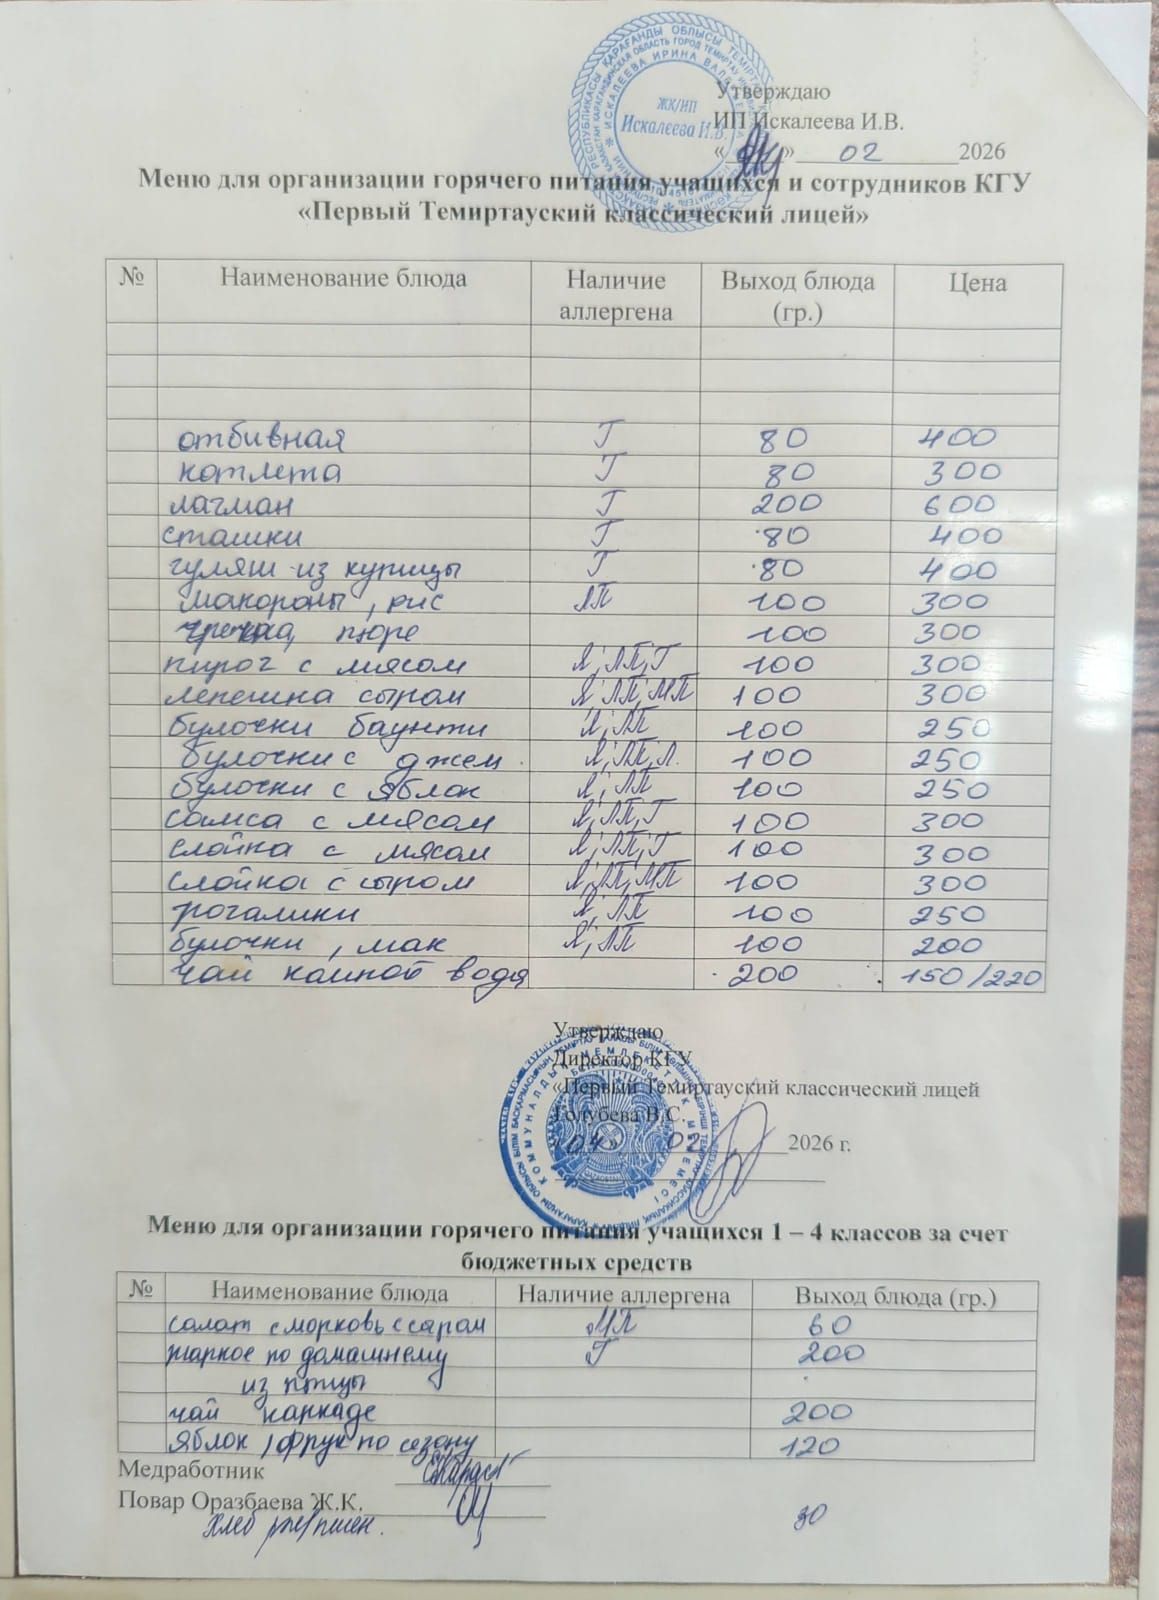 ЖК/ИП
Искалеева И.В.
Утверждаю
ИП Искалеева И.В.
« » 02 2026
Меню для организации горячего питания учащихся и сотрудников КГУ
«Первый Темиртауский классический лицей»
№ Наименование блюда Наличие аллергена Выход блюда (гр.) Цена
отбивная Г 80 400
котлета Г 80 300
лагман Г 200 600
сташки Г 80 400
гуляш из курицы Г 80 400
макороны, рис ЛП 100 300
гречка, пюре 100 300
пирог с мясом Я, ЛП, Г 100 300
лепешка сыром Я, ЛП, МП 100 300
булочки баунти Я, ЛП 100 250
булочки с джем. Я, ЛП, Л. 100 250
булочки с яблок Я, ЛП 100 250
самса с мясом Я, ЛП, Г 100 300
слойка с мясом Я, ЛП, Г 100 300
слойка с сыром Я, ЛП, МП 100 300
рогалики Я, ЛП 100 250
булочки, мак Я, ЛП 100 200
чай компот вода 200 150/220
Утверждаю
Директор КГУ
«Первый Темиртауский классический лицей
Голубева В.С.
04» 02 2026 г.
Меню для организации горячего питания учащихся 1 – 4 классов за счет
бюджетных средств
№ Наименование блюда Наличие аллергена Выход блюда (гр.)
салат с морковь с сыром МП 60
жаркое по домашнему Г 200
из птицы
чай каркаде 200
яблок, фрук по сезону 120
Медработник
Повар Оразбаева Ж.К.
хлеб рж/пшен. 30